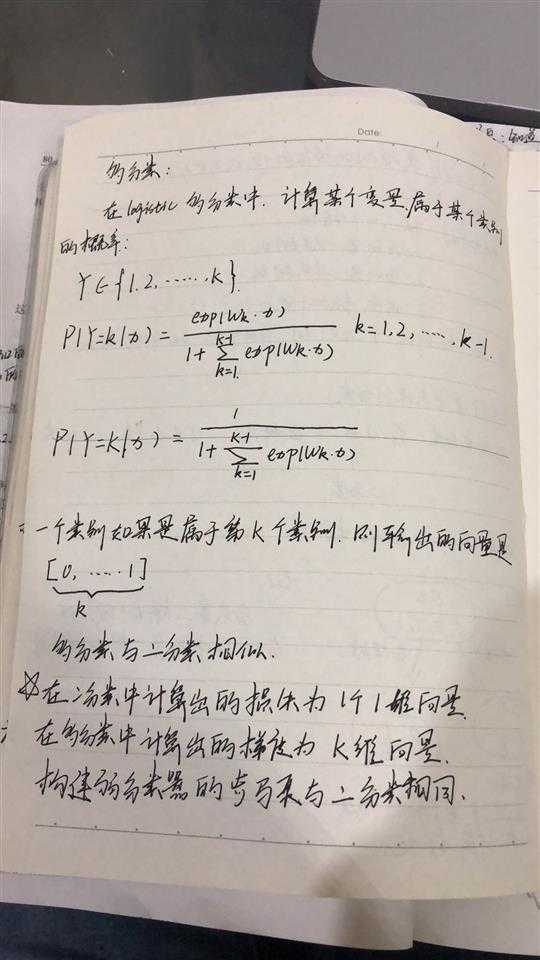 Date:
多分类:
在logistic 多分类中. 计算某个变量属于某个类别
的概率:
Y∈{1.2, ……, k}.
P(Y=k|x) = exp(Wk·x) / (1+ ∑_{k=1}^{k-1} exp(Wk·x)) k=1,2, …, k-1.
P(Y=K|x) = 1 / (1+ ∑_{k=1}^{K-1} exp(Wk·x))
一个类别如果是属于第K个类别. 则输出的向量是
[0, ……1]
k
多分类与二分类相似.
☆在二分类中计算出的损失为1个1维向量.
在多分类中计算出的梯度为 K维向量.
构建多分类器的步骤与二分类相同.